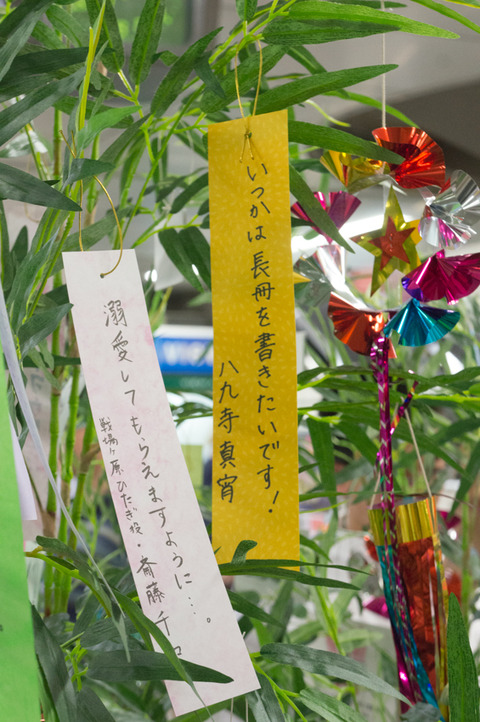 いつかは長冊を書きたいです!
八九寺真宵
溺愛してもらえますように…。
戦場ヶ原ひたぎ役・斎藤千